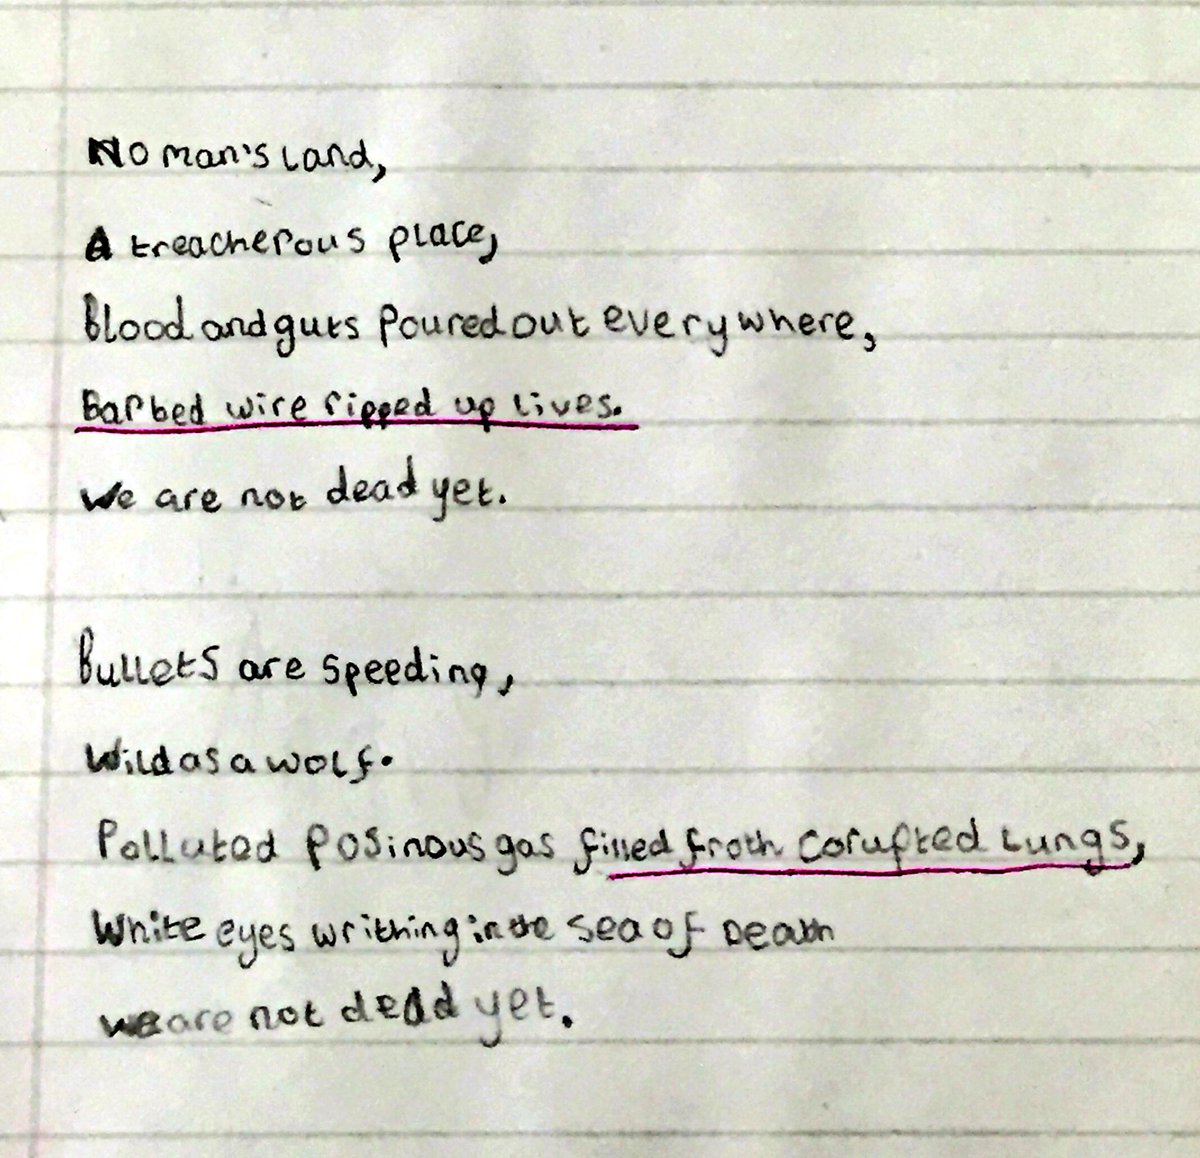 No man's land,
A treacherous place,
Blood and guts poured out everywhere,
Barbed wire ripped up lives.
We are not dead yet.
Bullets are speeding,
Wild as a wolf.
Polluted posinous gas filled froth corupted lungs,
White eyes writhing in the sea of Death
we are not dead yet.